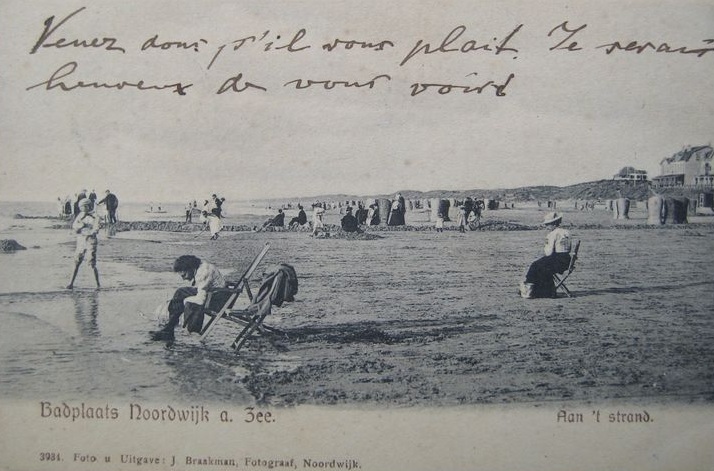 Venez donc s'il vous plait. Je serais
heureux de vous voir
Badplaats Noordwijk a. Zee.
Aan 't strand.
3981. Foto u Uitgave: J. Braakman, Fotograaf, Noordwijk.